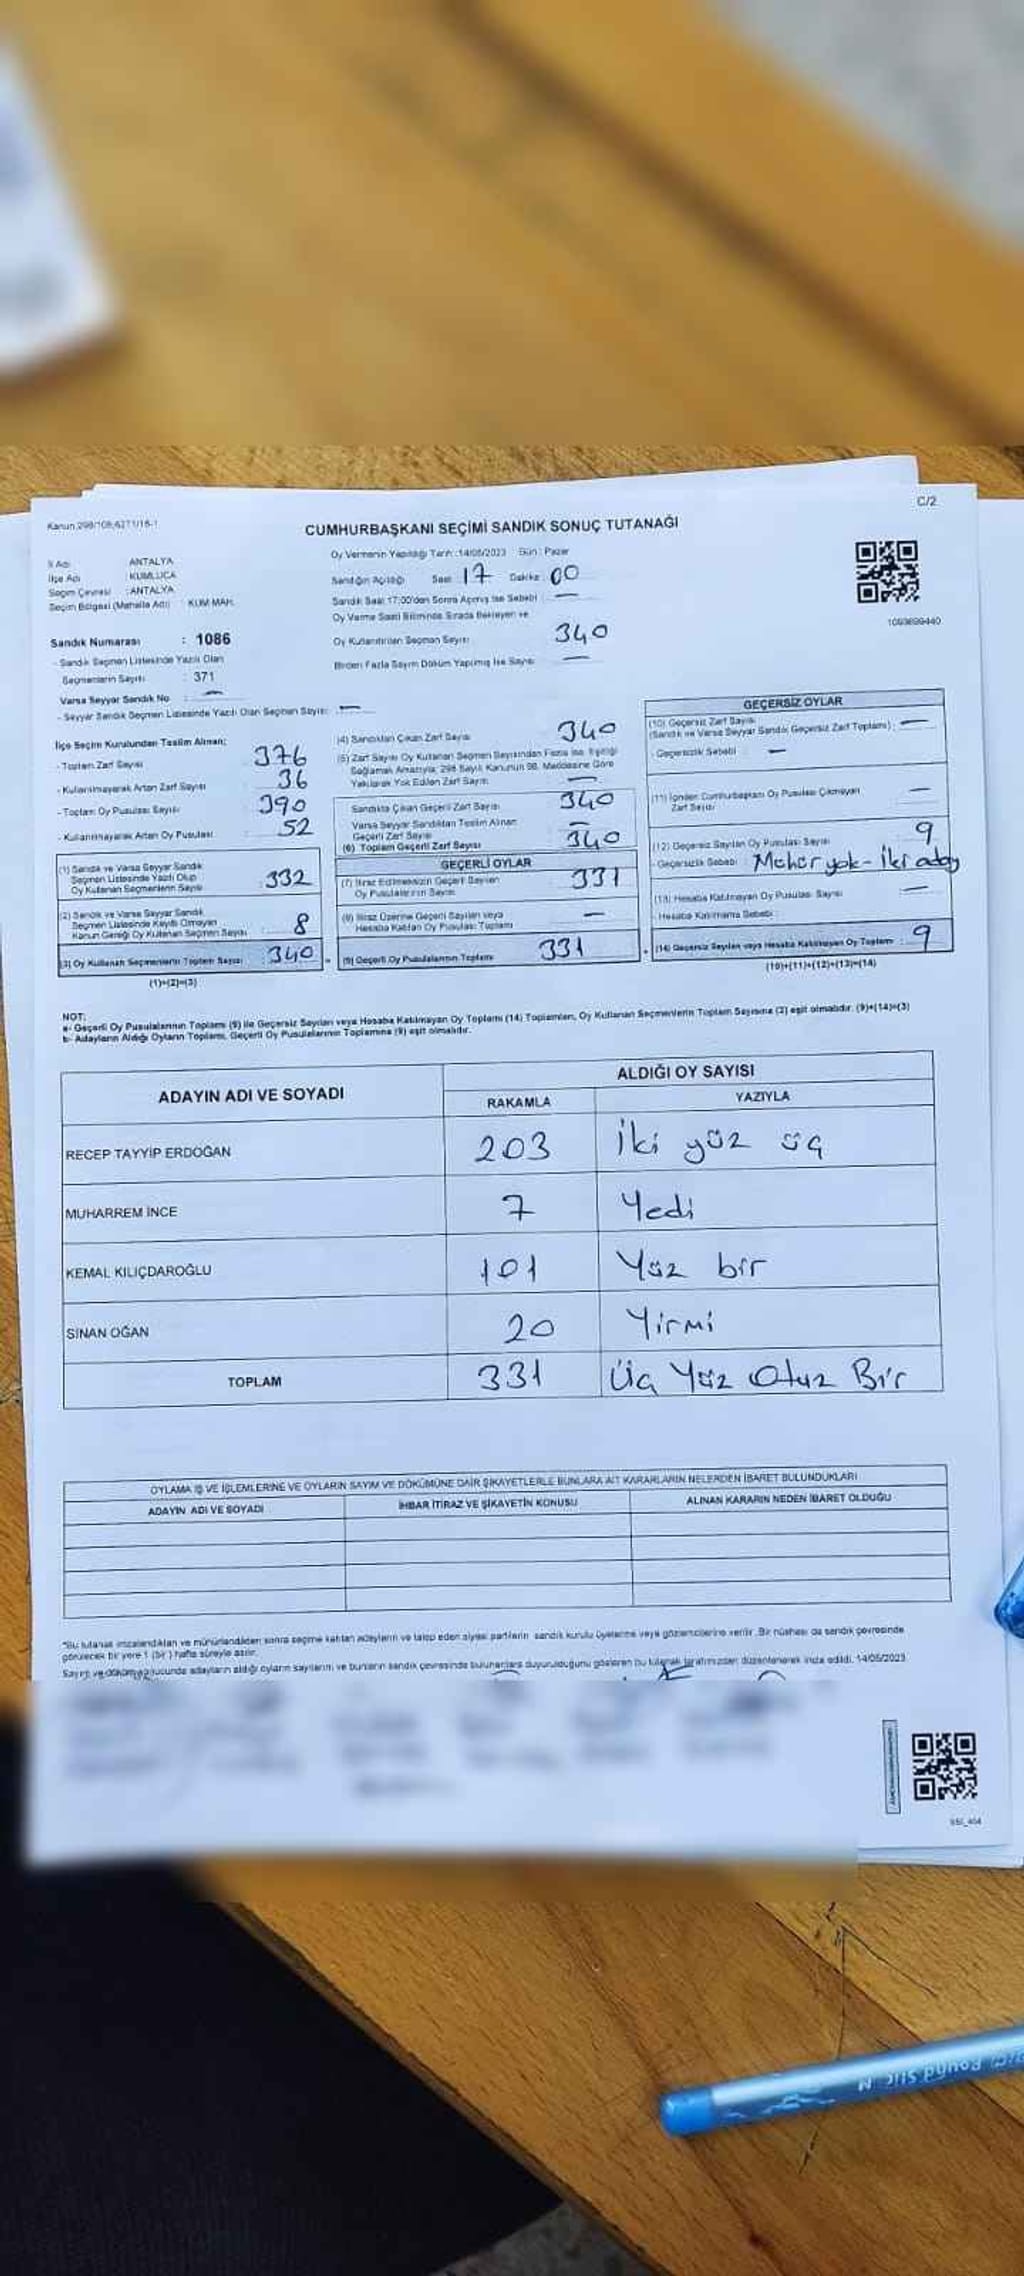 C/2
Kanun.298/109,6271/16-1
CUMHURBAŞKANI SEÇİMİ SANDIK SONUÇ TUTANAĞI
İl Adı : ANTALYA
İlçe Adı : KUMLUCA
Seçim Çevresi : ANTALYA
Seçim Bölgesi (Mahalle Adı) : KUM MAH.
Oy Vermenin Yapıldığı Tarih :14/05/2023 Gün : Pazar
Sandığın Açıldığı Saat 17 Dakika : 00
Sandık Saat 17:00'den Sonra Açılmış İse Sebebi : —
Oy Verme Saati Bitiminde Sırada Bekleyen ve
Oy Kullandırılan Seçmen Sayısı 340
Birden Fazla Sayım Döküm Yapılmış İse Sayısı —
Sandık Numarası : 1086
- Sandık Seçmen Listesinde Yazılı Olan
Seçmenlerin Sayısı : 371
Varsa Seyyar Sandık No : —
- Seyyar Sandık Seçmen Listesinde Yazılı Olan Seçmen Sayısı: —
İlçe Seçim Kurulundan Teslim Alınan;
- Toplam Zarf Sayısı 376
- Kullanılmayarak Artan Zarf Sayısı 36
- Toplam Oy Pusulası Sayısı 390
- Kullanılmayarak Artan Oy Pusulası 52
(1) Sandık ve Varsa Seyyar Sandık
Seçmen Listesinde Yazılı Olup
Oy Kullanan Seçmenlerin Sayısı : 332
(2) Sandık ve Varsa Seyyar Sandık
Seçmen Listesinde Kayıtlı Olmayan
Kanun Gereği Oy Kullanan Seçmen Sayısı : 8
(3) Oy Kullanan Seçmenlerin Toplam Sayısı : 340
(1)+(2)=(3)
(4) Sandıktan Çıkan Zarf Sayısı 340
(5) Zarf Sayısı Oy Kullanan Seçmen Sayısından Fazla ise, Eşitliği
Sağlamak Amacıyla; 298 Sayılı Kanunun 98. Maddesine Göre
Yakılarak Yok Edilen Zarf Sayısı —
Sandıkta Çıkan Geçerli Zarf Sayısı 340
Varsa Seyyar Sandıktan Teslim Alınan
Geçerli Zarf Sayısı —
(6) Toplam Geçerli Zarf Sayısı 340
GEÇERLİ OYLAR
(7) İtiraz Edilmeksizin Geçerli Sayılan
Oy Pusulalarının Sayısı 331
(8) İtiraz Üzerine Geçerli Sayılan veya
Hesaba Katılan Oy Pusulası Toplamı —
(9) Geçerli Oy Pusulalarının Toplamı 331
1093699440
GEÇERSİZ OYLAR
(10) Geçersiz Zarf Sayısı
(Sandık ve Varsa Seyyar Sandık Geçersiz Zarf Toplamı) : —
- Geçersizlik Sebebi : —
(11) İçinden Cumhurbaşkanı Oy Pusulası Çıkmayan
Zarf Sayısı —
(12) Geçersiz Sayılan Oy Pusulası Sayısı 9
- Geçersizlik Sebebi : Mühür yok - İki aday
(13) Hesaba Katılmayan Oy Pusulası Sayısı —
- Hesaba Katılmama Sebebi :
(14) Geçersiz Sayılan veya Hesaba Katılmayan Oy Toplamı : 9
(10)+(11)+(12)+(13)=(14)
NOT:
a- Geçerli Oy Pusulalarının Toplamı (9) ile Geçersiz Sayılan veya Hesaba Katılmayan Oy Toplamı (14) Toplamları, Oy Kullanan Seçmenlerin Toplam Sayısına (3) eşit olmalıdır. (9)+(14)=(3)
b- Adayların Aldığı Oyların Toplamı, Geçerli Oy Pusulalarının Toplamına (9) eşit olmalıdır.
ADAYIN ADI VE SOYADI
ALDIĞI OY SAYISI
RAKAMLA YAZIYLA
RECEP TAYYİP ERDOĞAN 203 İki yüz üç
MUHARREM İNCE 7 Yedi
KEMAL KILIÇDAROĞLU 101 Yüz bir
SİNAN OĞAN 20 Yirmi
TOPLAM 331 Üç Yüz Otuz Bir
OYLAMA İŞ VE İŞLEMLERİNE VE OYLARIN SAYIM VE DÖKÜMÜNE DAİR ŞİKAYETLERLE BUNLARA AİT KARARLARIN NELERDEN İBARET BULUNDUKLARI
ADAYIN ADI VE SOYADI İHBAR İTİRAZ VE ŞİKAYETİN KONUSU ALINAN KARARIN NEDEN İBARET OLDUĞU
*Bu tutanak imzalandıktan ve mühürlendikten sonra seçime katılan adayların ve talep eden siyasi partilerin sandık kurulu üyelerine veya gözlemcilerine verilir. Bir nüshası da sandık çevresinde
görülecek bir yere 1 (bir) hafta süreyle asılır.
Sayım ve döküm sonucunda adayların aldığı oyların sayılarını ve bunların sandık çevresinde bulunanlara duyurulduğunu gösteren bu tutanak tarafımızdan düzenlenerek imza edildi. 14/05/2023